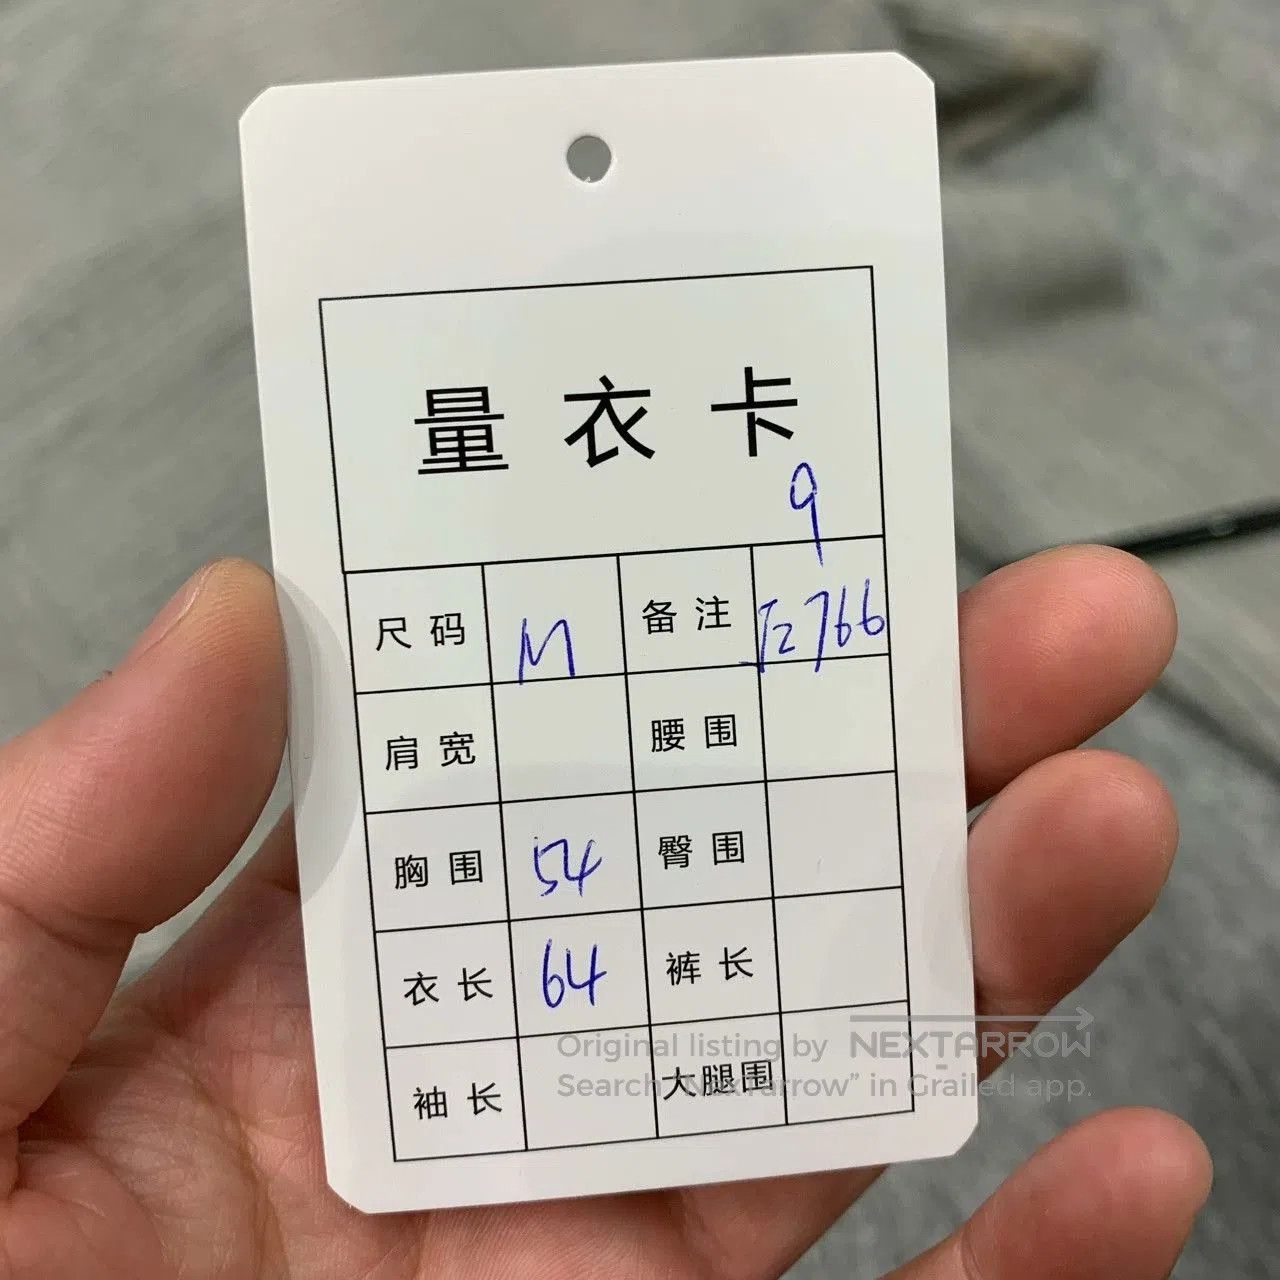 量衣卡
9
尺码 M 备注 左766
肩宽 腰围
胸围 54 臀围
衣长 64 裤长
袖长 大腿围
Original listing by NEXTARROW
Search "NexTarrow" in Grailed app.